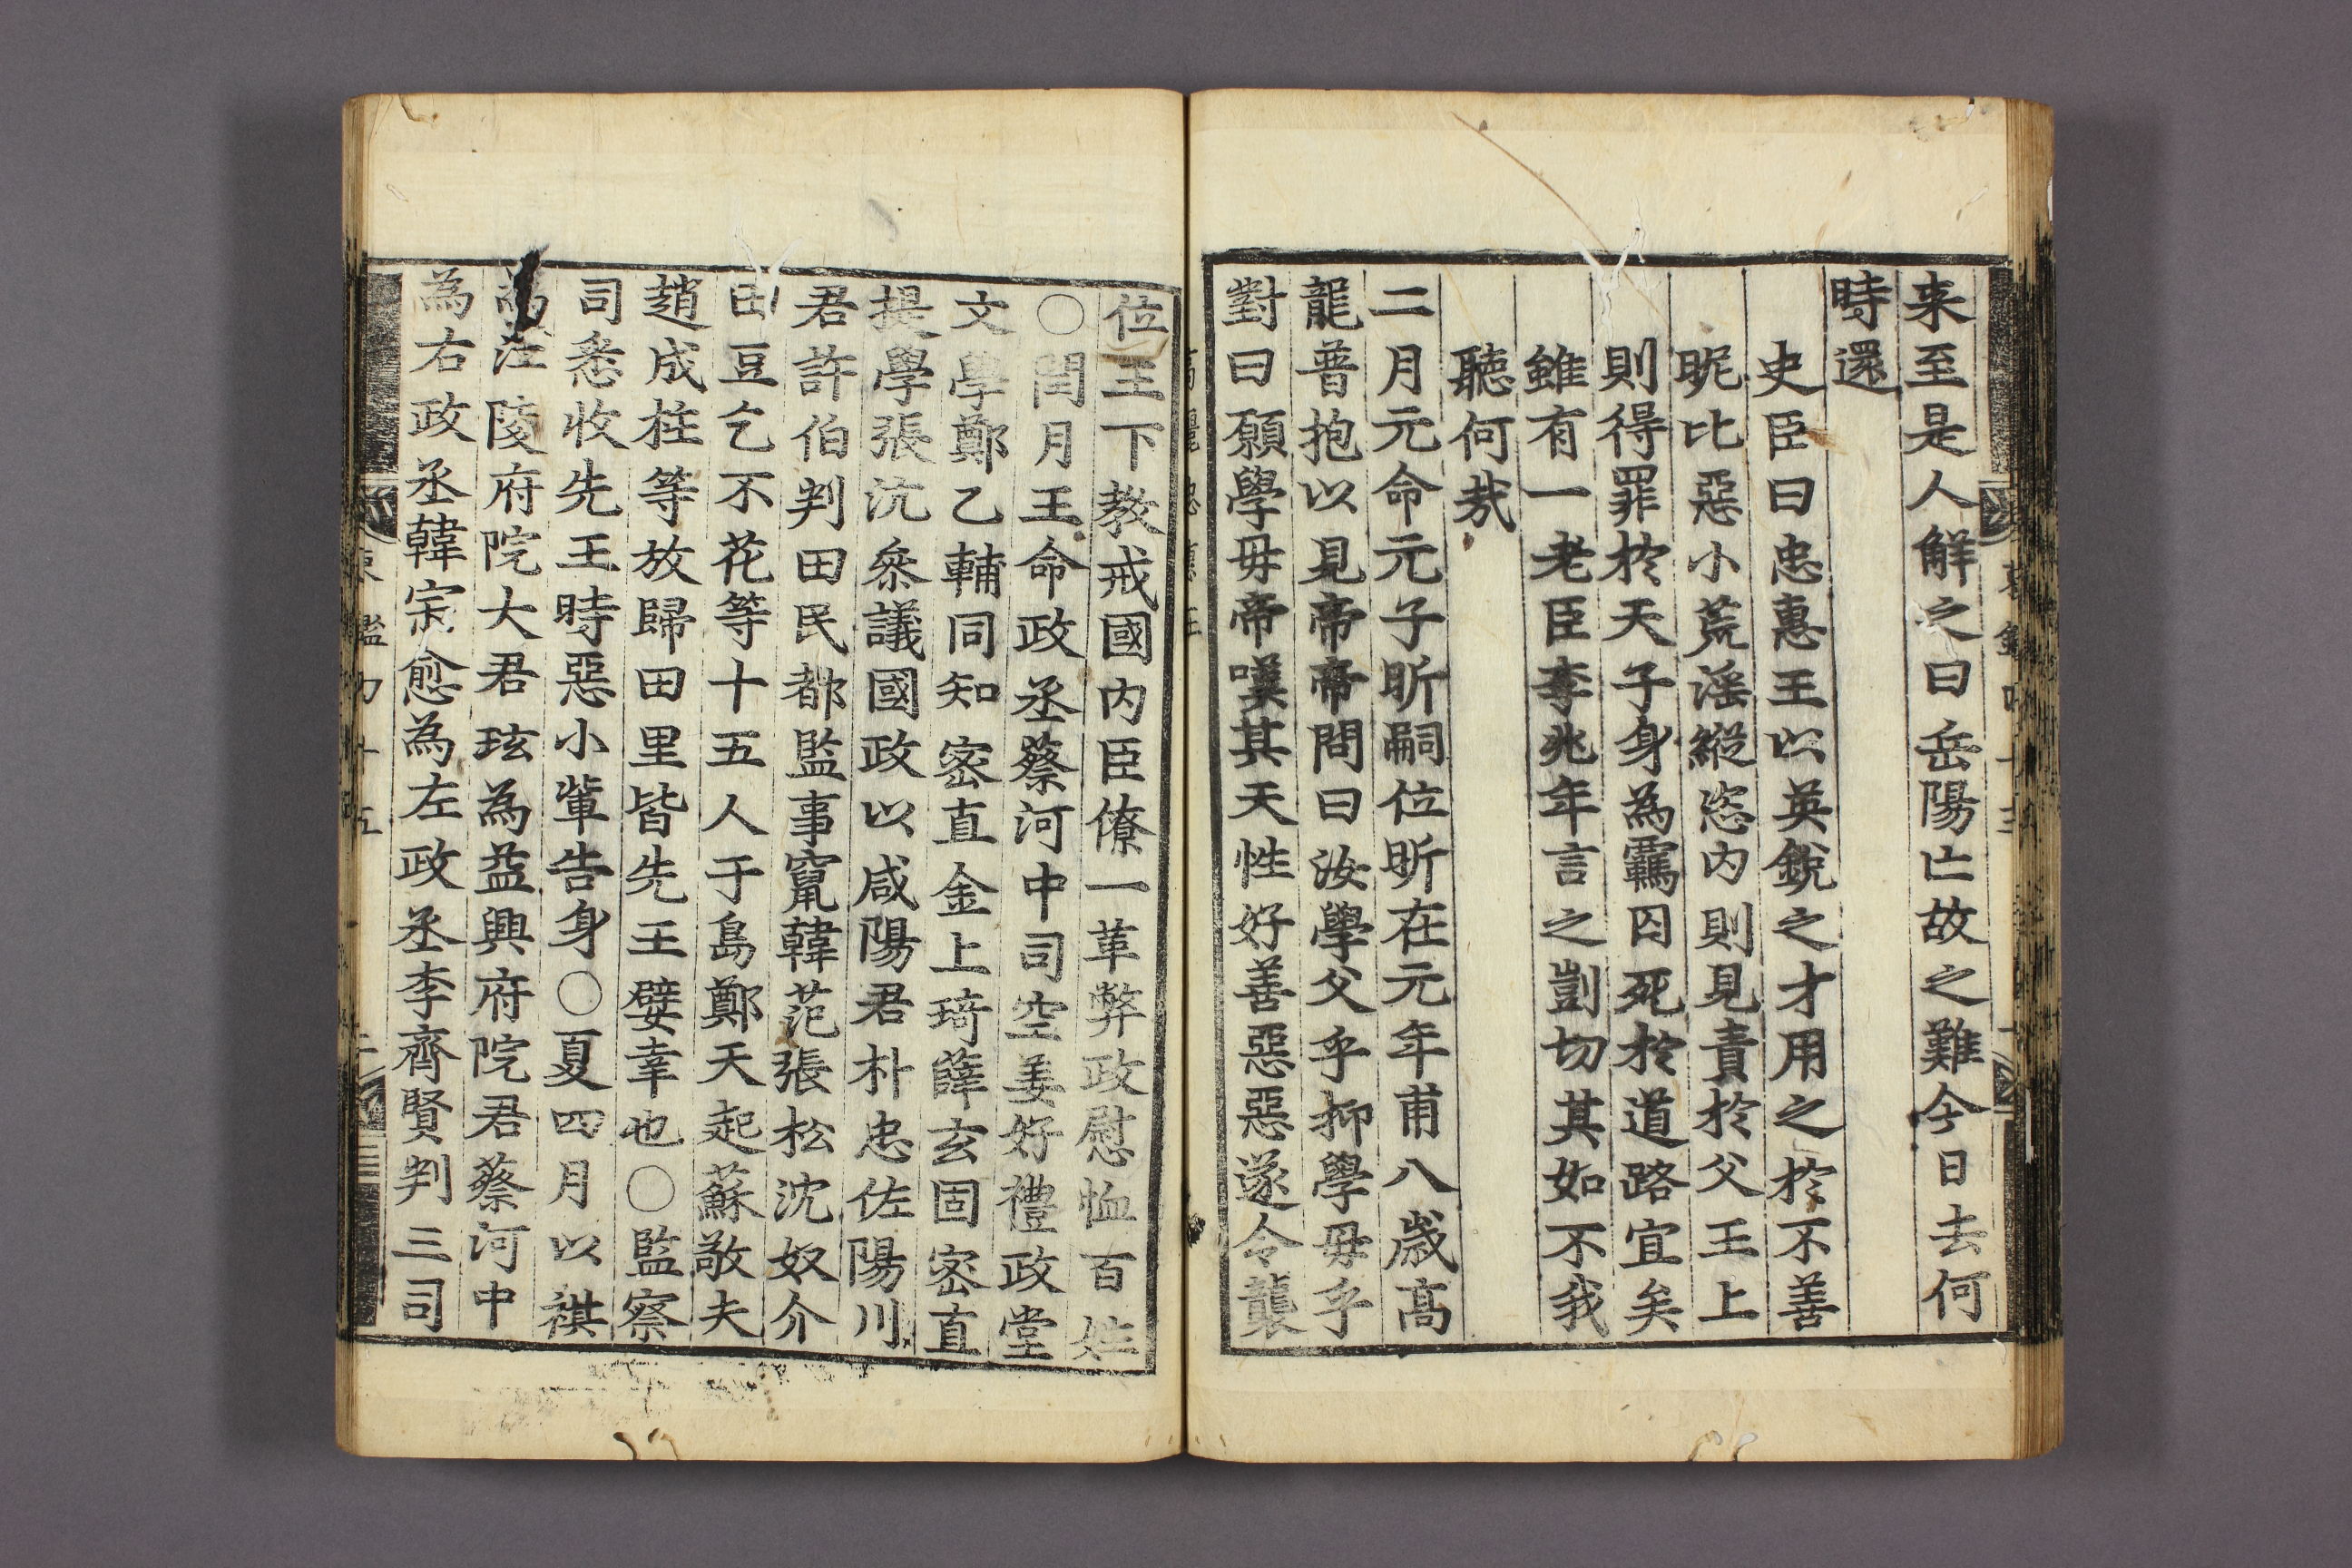 来至是人解之曰岳陽亡故之難今日去何
時還
史臣曰忠惠王以英銳之才用之於不善
昵比惡小荒淫縱恣内則見責於父王上
則得罪於天子身為羈囚死於道路宜矣
雖有一老臣李兆年言之剴切其如不我
聽何㢤
二月元命元子昕嗣位昕在元年甫八歲髙
龍普抱以見帝帝問曰汝學父乎抑學母乎
對曰願學母帝嘆其天性好善惡惡遂令襲
位王下教戒國内臣僚一革弊政慰恤百姓
○閏月王命政丞蔡河中司空姜好禮政堂
文學鄭乙輔同知密直金上琦薛玄固密直
提學張沆叅議國政以咸陽君朴忠佐陽川
君許伯判田民都監事竄韓范張松沈奴介
田豆乞不花等十五人于島鄭天起蘇敬夫
趙成柱等放歸田里皆先王嬖幸也○監察
司悉收先王時惡小軰告身○夏四月以祺
為江陵府院大君玹為益興府院君蔡河中
為右政丞韓宗愈為左政丞李齊賢判三司